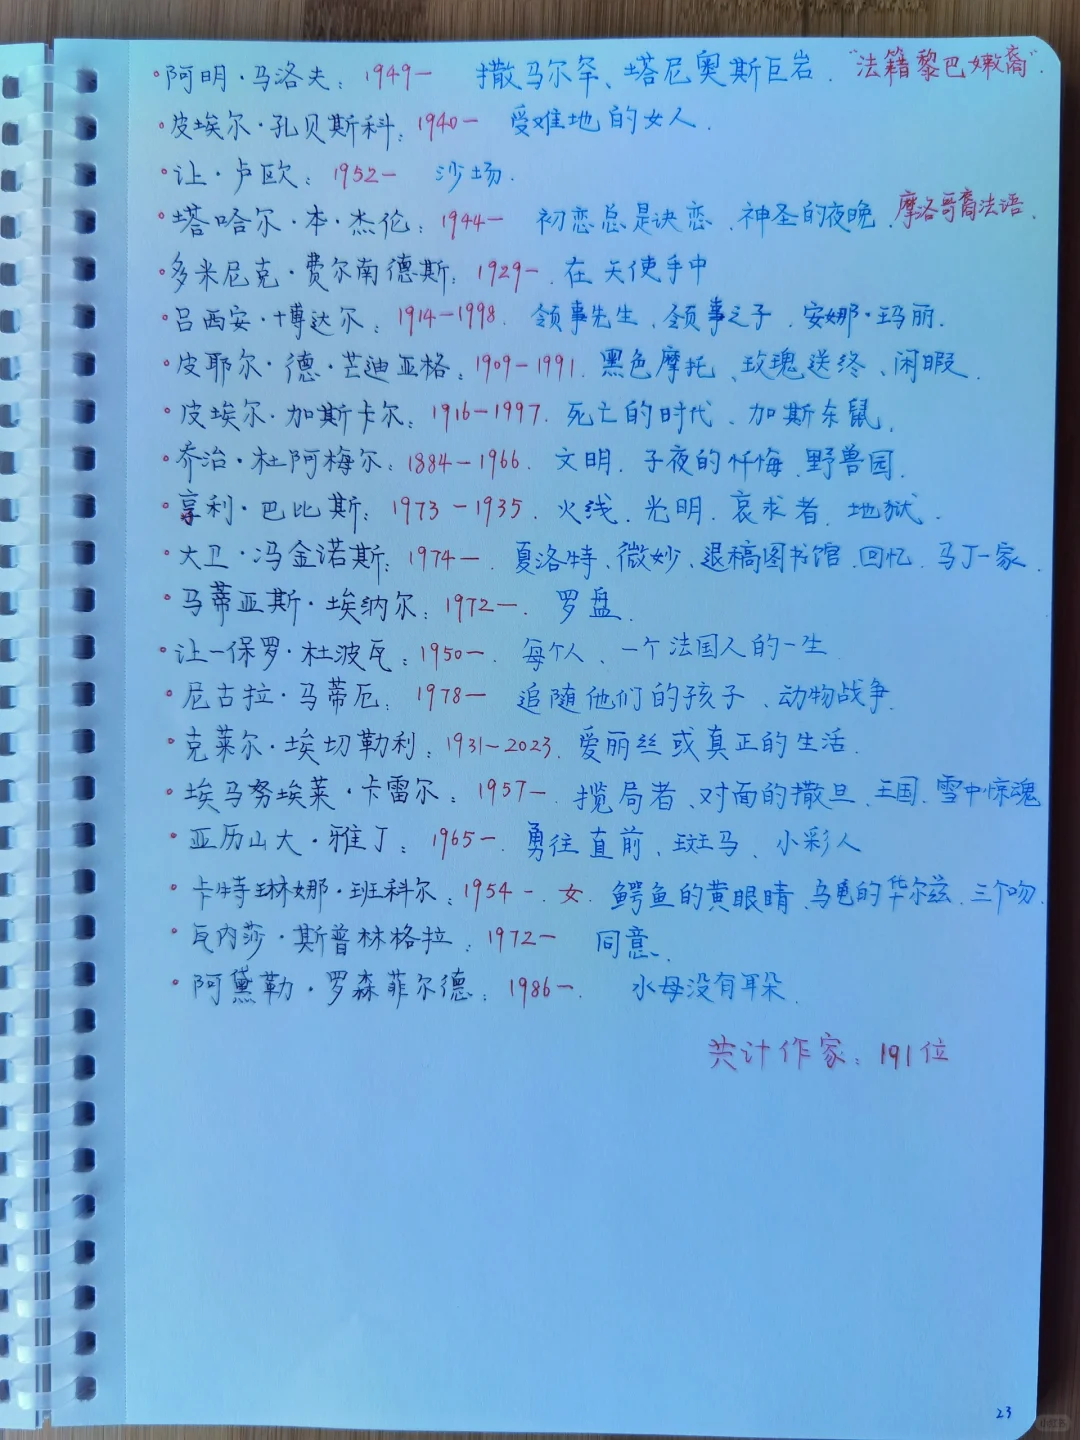 阿明·马洛夫：1949— 撒马尔罕、塔尼奥斯巨岩．"法籍黎巴嫩裔"．
皮埃尔·孔贝斯科：1940— 受难地的女人．
让·卢欧：1952— 沙场．
塔哈尔·本·杰伦：1944— 初恋总是诀恋．神圣的夜晚．摩洛哥裔法语．
多米尼克·费尔南德斯：1929— 在天使手中
吕西安·博达尔：1914—1998．领事先生、领事之子．安娜·玛丽．
皮耶尔·德·芒迪亚格：1909—1991．黑色摩托、玫瑰送终、闲暇．
皮埃尔·加斯卡尔：1916—1997．死亡的时代、加斯东鼠．
乔治·杜阿梅尔：1884—1966．文明．子夜的忏悔．野兽园．
享利·巴比斯：1973—1935．火线．光明．哀求者．地狱．
大卫·冯金诺斯：1974—．夏洛特、微妙、退稿图书馆．回忆．马丁一家．
马蒂亚斯·埃纳尔：1972—．罗盘．
让—保罗·杜波瓦：1950—．每个人、一个法国人的一生
尼古拉·马蒂厄：1978— 追随他们的孩子、动物战争．
克莱尔·埃切勒利：1931—2023．爱丽丝或真正的生活．
埃马努埃莱·卡雷尔：1957—．搅局者、对面的撒旦．王国．雪中惊魂
亚历山大·雅丁：1965—．勇往直前、斑马、小彩人
卡特琳娜·班科尔：1954—．女．鳄鱼的黄眼睛．乌龟的华尔兹．三个吻．
瓦内莎·斯普林格拉：1972— 同意．
阿黛勒·罗森菲尔德：1986—．水母没有耳朵．
共计作家：191位
23
小红书